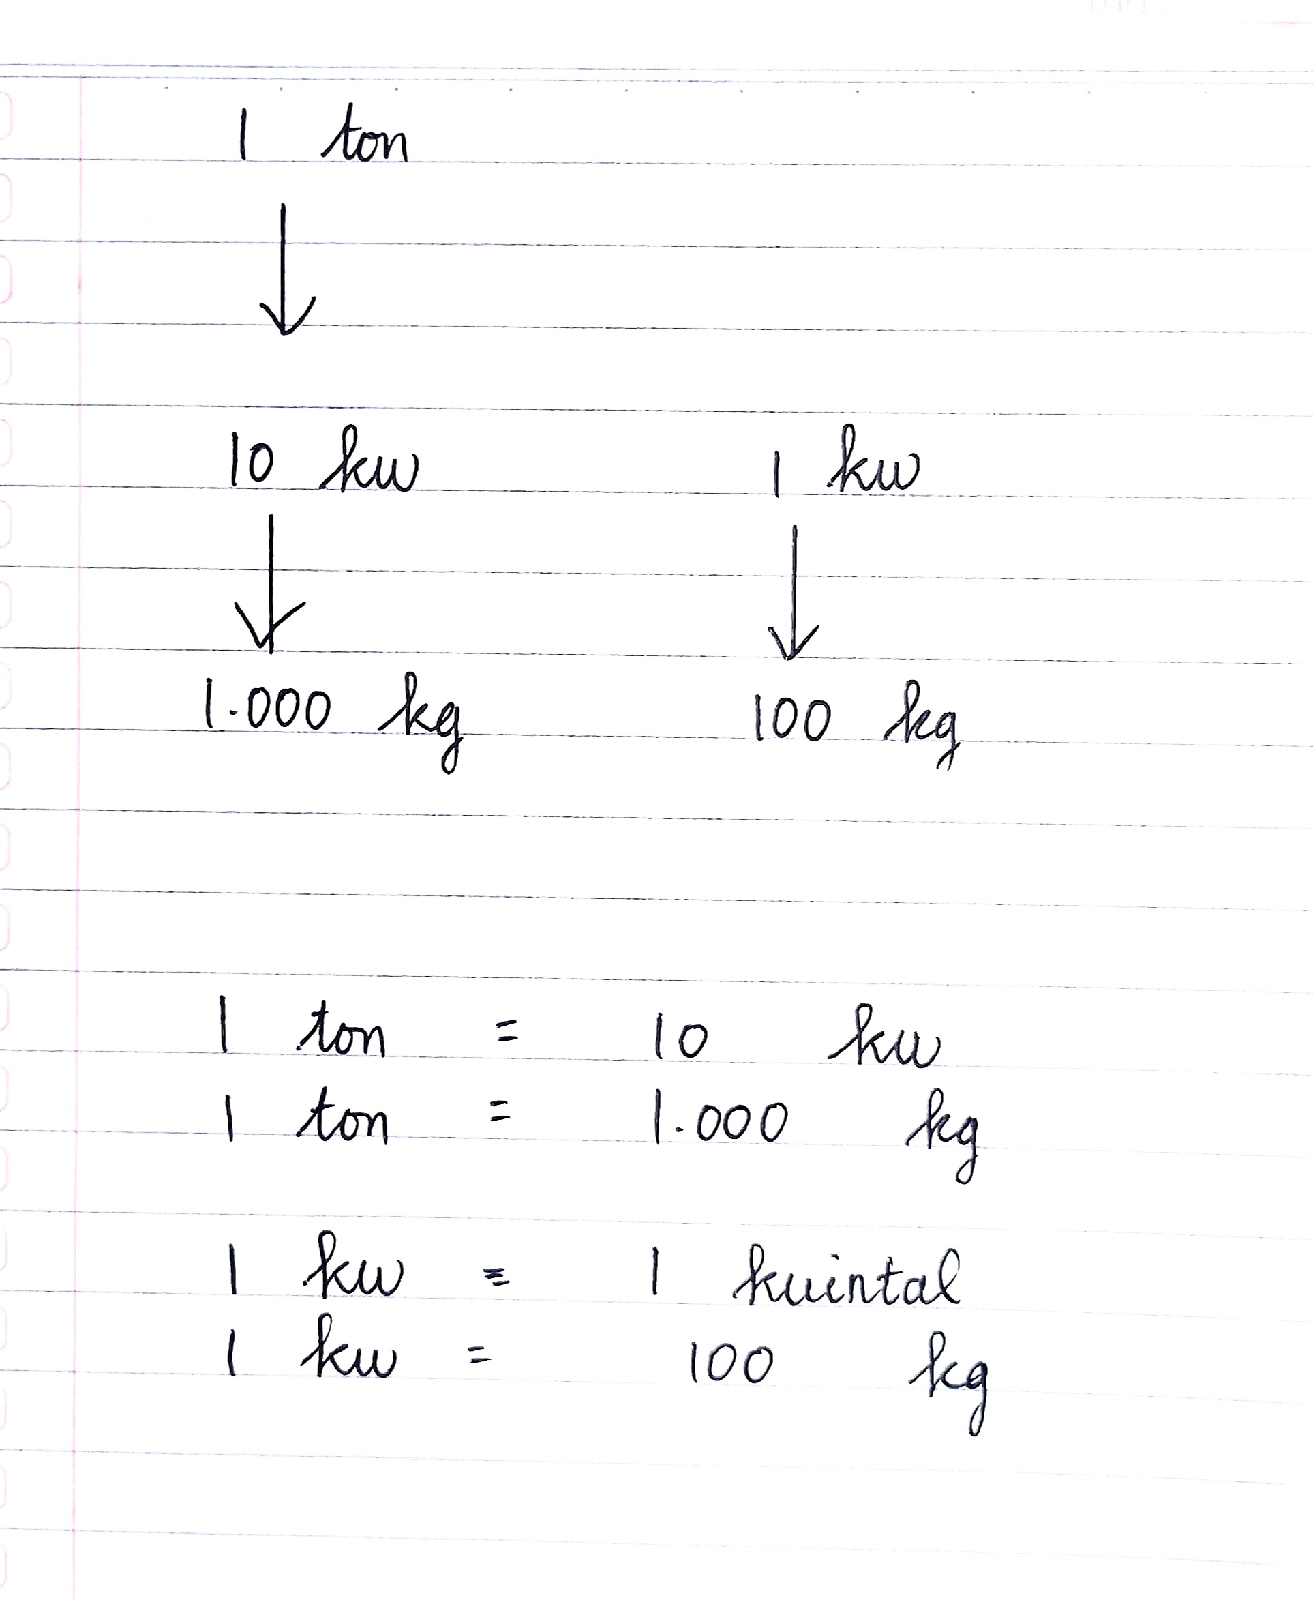 1 ton
↓
10 kw 1 kw
↓ ↓
1.000 kg 100 kg
1 ton = 10 kw
1 ton = 1.000 kg
1 kw = 1 kuintal
1 kw = 100 kg